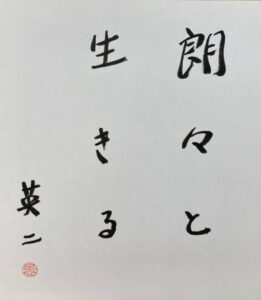 朗々と
生きる
英二